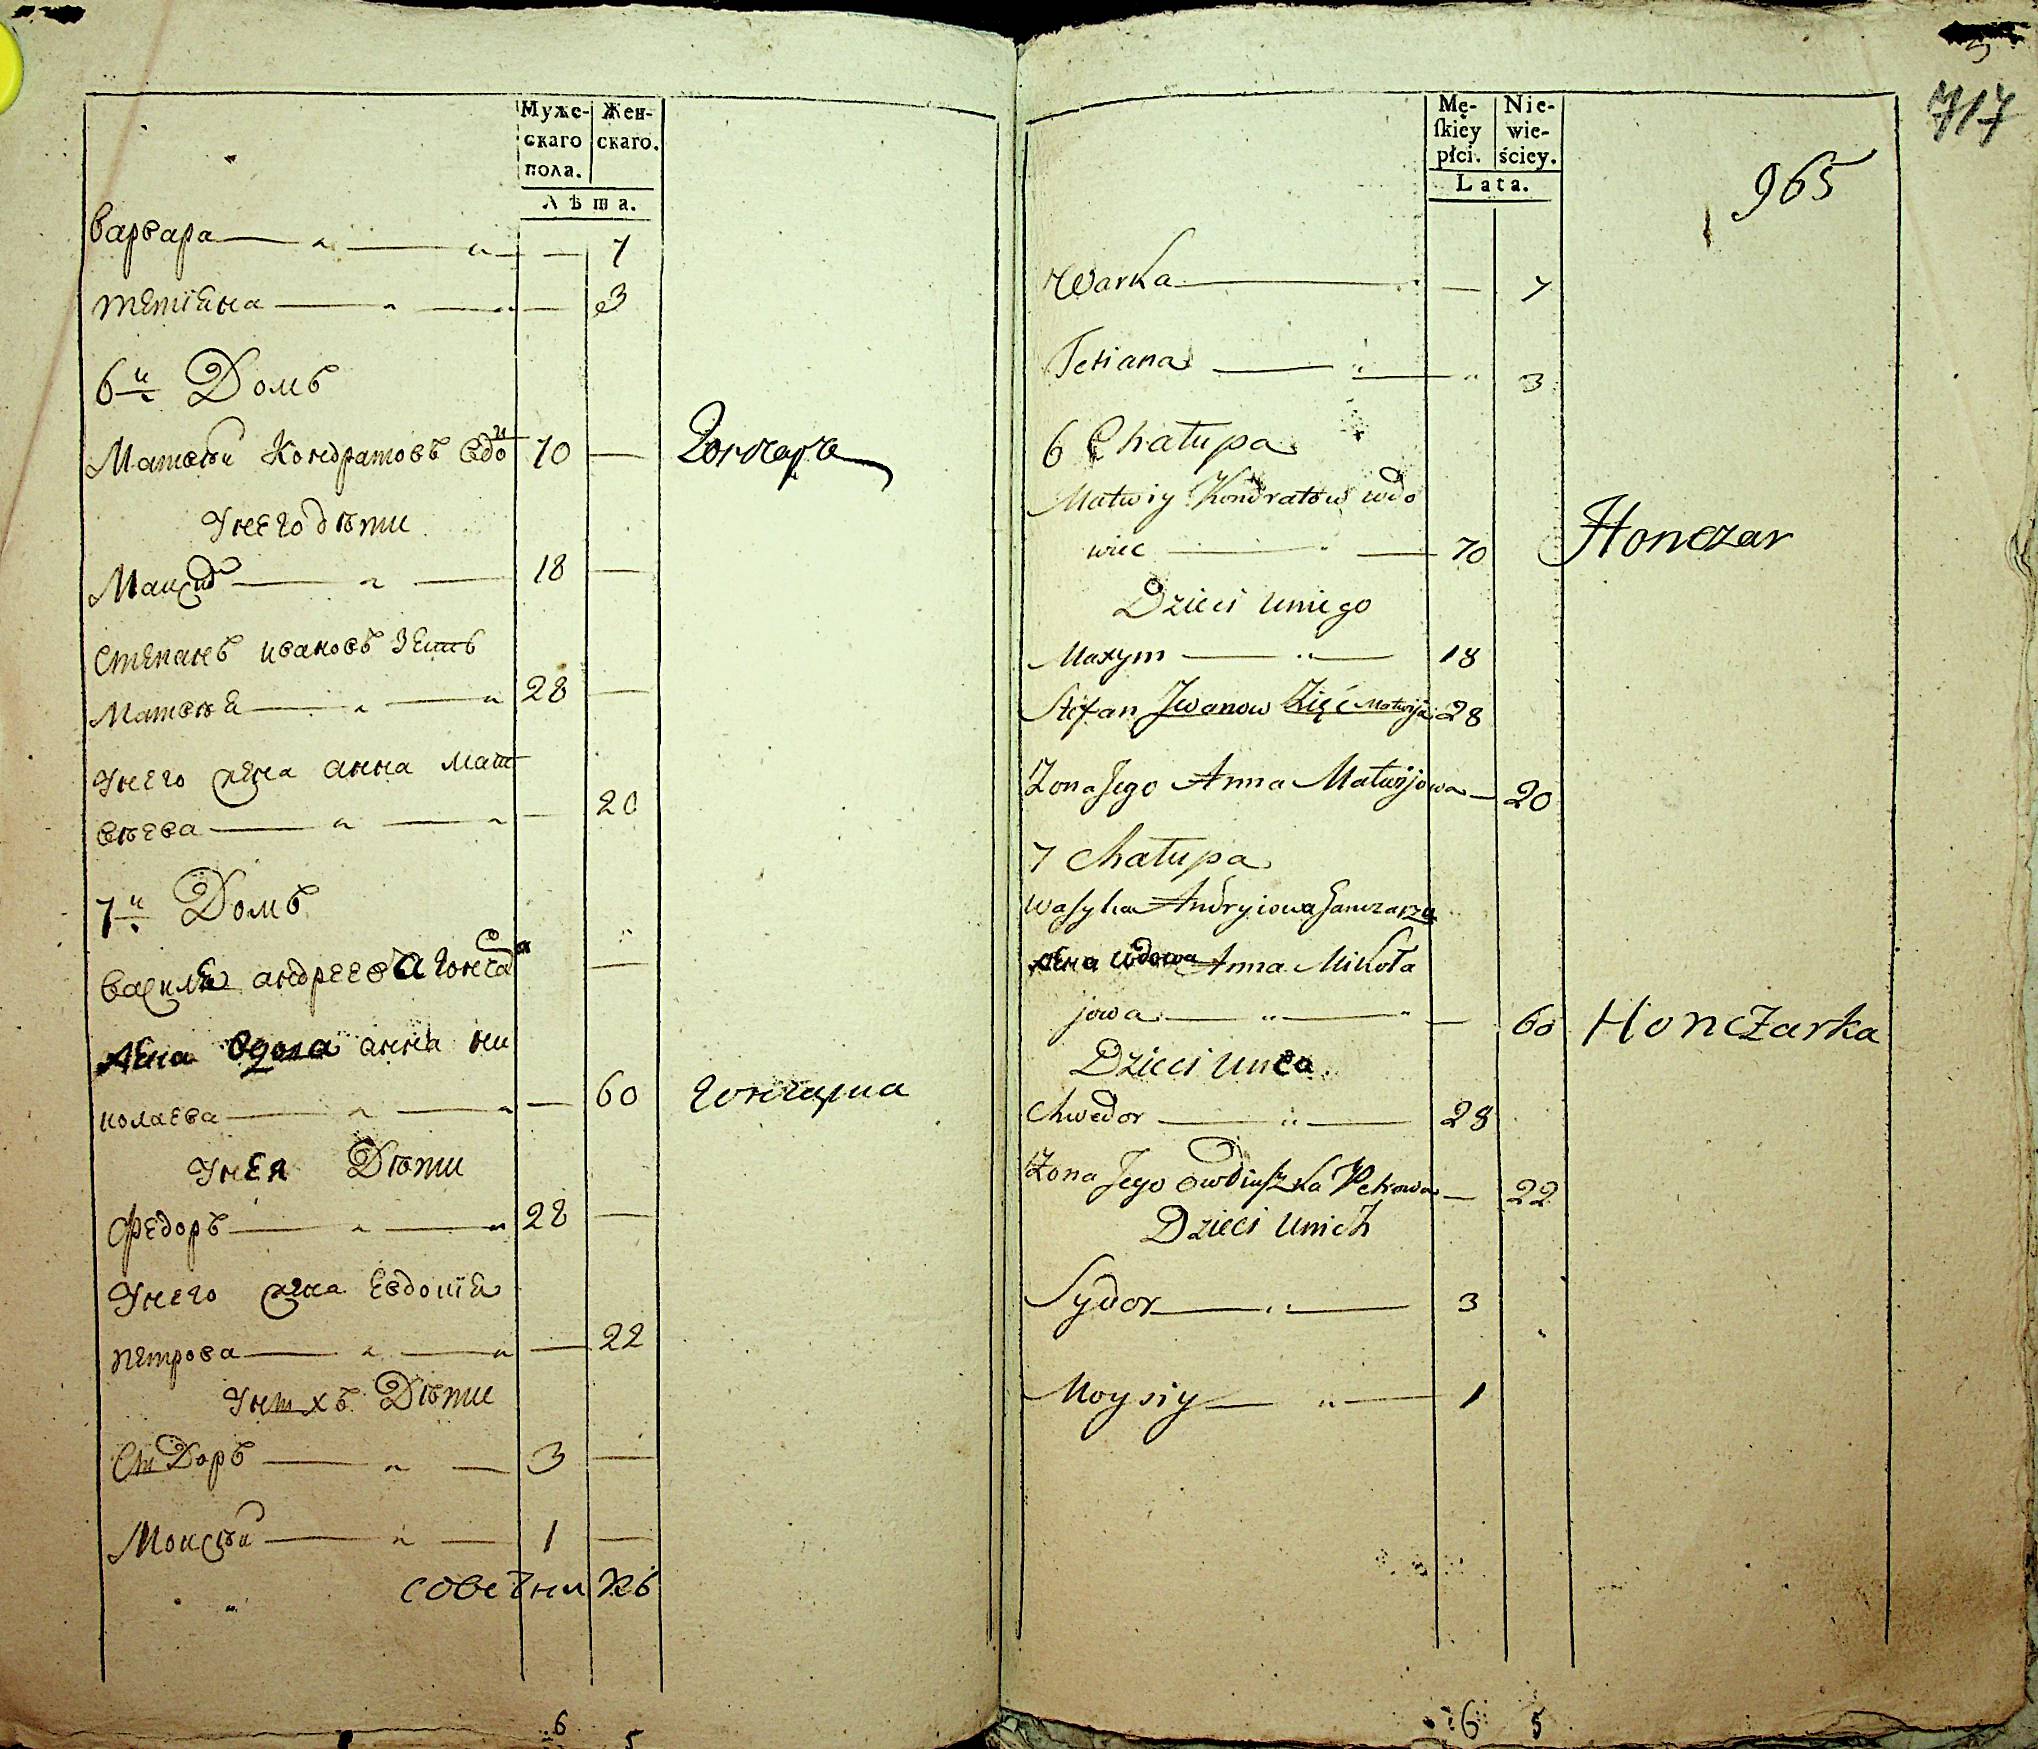 Муже- Жен-
скаго скаго.
пола.
Лѣта.
Варвара — " — " — — 7
Тетіана — " — " — 3
6й Домъ
Матвѣй Кондратовъ вдо 70 — Гончаръ
У него дѣти
Максим — " — 18 —
Степанъ Ивановъ зять
Матвѣя — " — " 28 —
У него жена Анна Мат
вѣева — " — " — 20
7й Домъ
Василя Андреева Гонча —
жена вдова Анна Ни
колаева — " — " — 60 Гончарка
У нея Дѣти
Федоръ — " — " 28 —
У него жена Евдокія
Петрова — " — " — 22
У нихъ Дѣти
Сидоръ — " — 3 —
Моисѣй — " — 1 —
6 5
717
965
Mę- Nie-
ſkiéy wie-
płci. ściey.
Lata.
Warka — — 7
Tetiana — " — " 3
6 Chałupa
Matwiy Kondratow wdo
wiec — " — 70 Honczar
Dzieci uniego
Maxym — " — 18
Stefan Jwanow Zięć Matwija 28
Zona Jego Anna Matwijowa — 20
7 Chałupa
Wasyla Andryiowa Hanczarza
жена wdowa Anna Mikoła
jowa — " — " — 60 Honczarka
Dzieci unea
Chwedor — " — 28
Zona Jego Owdiuszka Petrowa — 22
Dzieci unich
Sydor — " — 3
Moysiy — " — 1
6 5